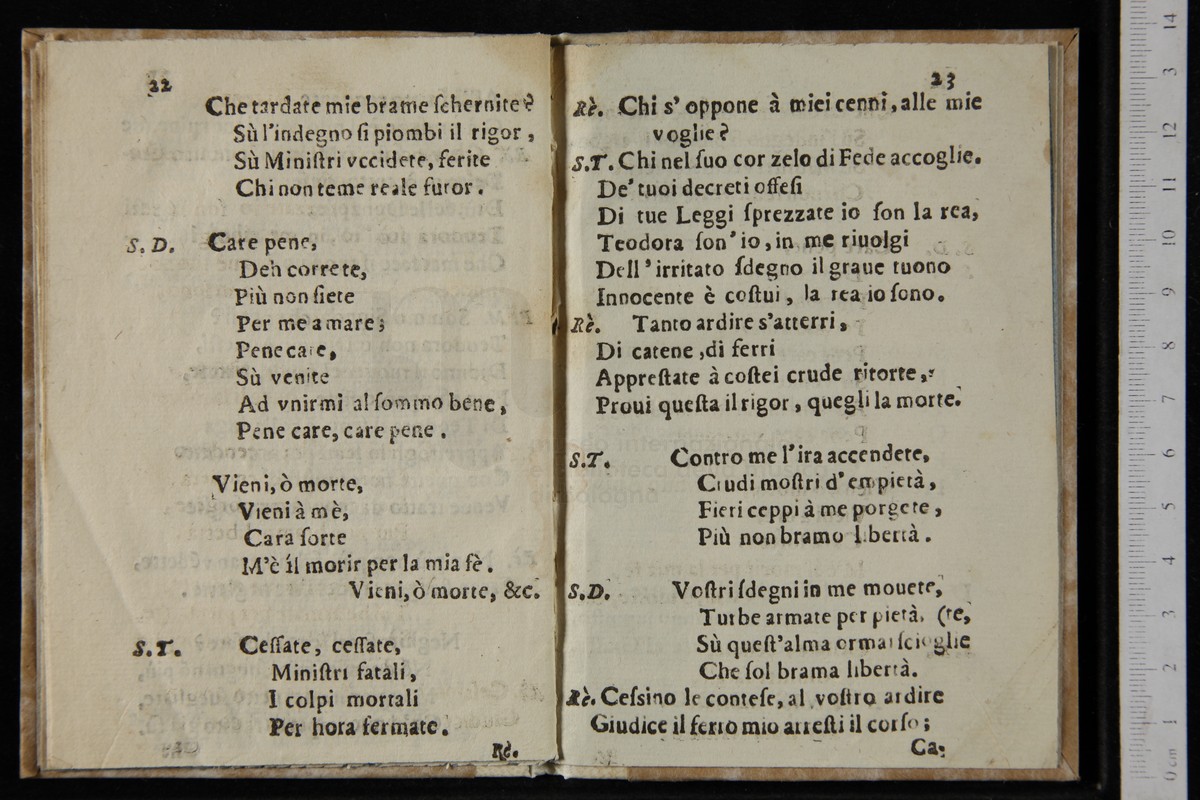 22
Che tardate mie brame ſchernite?
Sù l'indegno ſi piombi il rigor,
Sù Miniſtri vccidete, ferite
Chi non teme reale furor.
S. D. Care pene,
Deh correte,
Più non ſiete
Per me amare;
Pene care,
Sù venite
Ad vnirmi al ſommo bene,
Pene care, care pene.
Vieni, ò morte,
Vieni à mè,
Cara ſorte
M'è il morir per la mia fè.
Vieni, ò morte, &c.
S. T. Ceſſate, ceſſate,
Miniſtri fatali,
I colpi mortali
Per hora fermate.
Rè.
23
Rè. Chi s' oppone à miei cenni, alle mie
voglie?
S. T. Chi nel ſuo cor zelo di Fede accoglie.
De' tuoi decreti offeſi
Di tue Leggi ſprezzate io ſon la rea,
Teodora ſon' io, in me riuolgi
Dell' irritato ſdegno il graue tuono
Innocente è coſtui, la rea io ſono.
Rè. Tanto ardire s'atterri,
Di catene, di ferri
Appreſtate à coſtei crude ritorte,
Proui queſta il rigor, quegli la morte.
S. T. Contro me l'ira accendete,
Crudi moſtri d' empietà,
Fieri ceppi à me porgete,
Più non bramo libertà.
S. D. Voſtri ſdegni in me mouete,
Turbe armate per pietà, (te,
Sù queſt'alma ormai ſcioglie
Che ſol brama libertà.
Rè. Ceſsino le conteſe, al voſtro ardire
Giudice il ferro mio arreſti il corſo;
Ca-